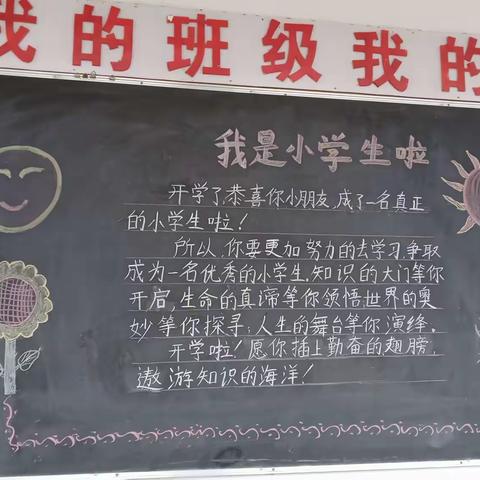 我的班级我的
我是小学生啦
开学了,恭喜你小朋友,成了一名真正
的小学生啦!
所以,你要更加努力的去学习,争取
成为一名优秀的小学生,知识的大门等你
开启,生命的真谛等你领悟世界的奥
妙等你探寻;人生的舞台等你演绎。
开学啦!愿你插上勤奋的翅膀,
遨游知识的海洋!